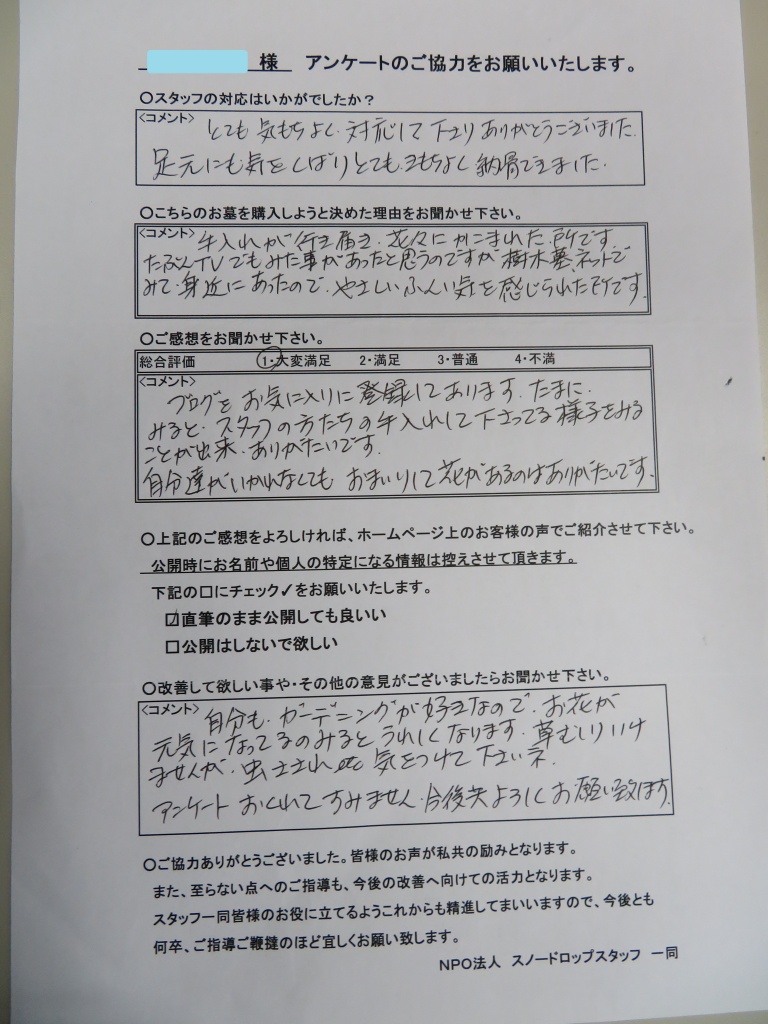 様 アンケートのご協力をお願いいたします。
○スタッフの対応はいかがでしたか？
<コメント>
とても 気もちよく 対応して 下さり ありがとうございました.
足元にも気をくばり とても きもちよく 納骨できました.
○こちらのお墓を購入しようと決めた理由をお聞かせ下さい。
<コメント> 手入れが 行き届き、花々に かこまれた 所です.
たぶんTVでもみた事があったと思うのですが 樹木墓、ネットで
みて 身近にあったので、やさしいふんい気を感じられた所です.
○ご感想をお聞かせ下さい。
総合評価 1・大変満足 2・満足 3・普通 4・不満
<コメント>
ブログを お気に入りに 登録してあります. たまに
みると、スタッフの方たちの手入れして下さってる様子をみる
ことが出来、ありがたいです.
自分達がいかれなくても おまいりして花があるのはありがたいです.
○上記のご感想をよろしければ、ホームページ上のお客様の声でご紹介させて下さい。
公開時にお名前や個人の特定になる情報は控えさせて頂きます。
下記の□にチェック✓をお願いいたします。
☑直筆のまま公開しても良いい
□公開はしないで欲しい
○改善して欲しい事や・その他の意見がございましたらお聞かせ下さい。
<コメント>
自分も、ガーデニングが好きなので、お花が
元気になってるのみると うれしくなります. 草むしりいけ
ませんが、虫さされ etc 気をつけて 下さいネ.
アンケート おくれて すみません. 今後共よろしくお願い致します.
○ご協力ありがとうございました。皆様のお声が私共の励みとなります。
また、至らない点へのご指導も、今後の改善へ向けての活力となります。
スタッフ一同皆様のお役に立てるようこれからも精進してまいいますので、今後とも
何卒、ご指導ご鞭撻のほど宜しくお願い致します。
NPO法人 スノードロップスタッフ 一同